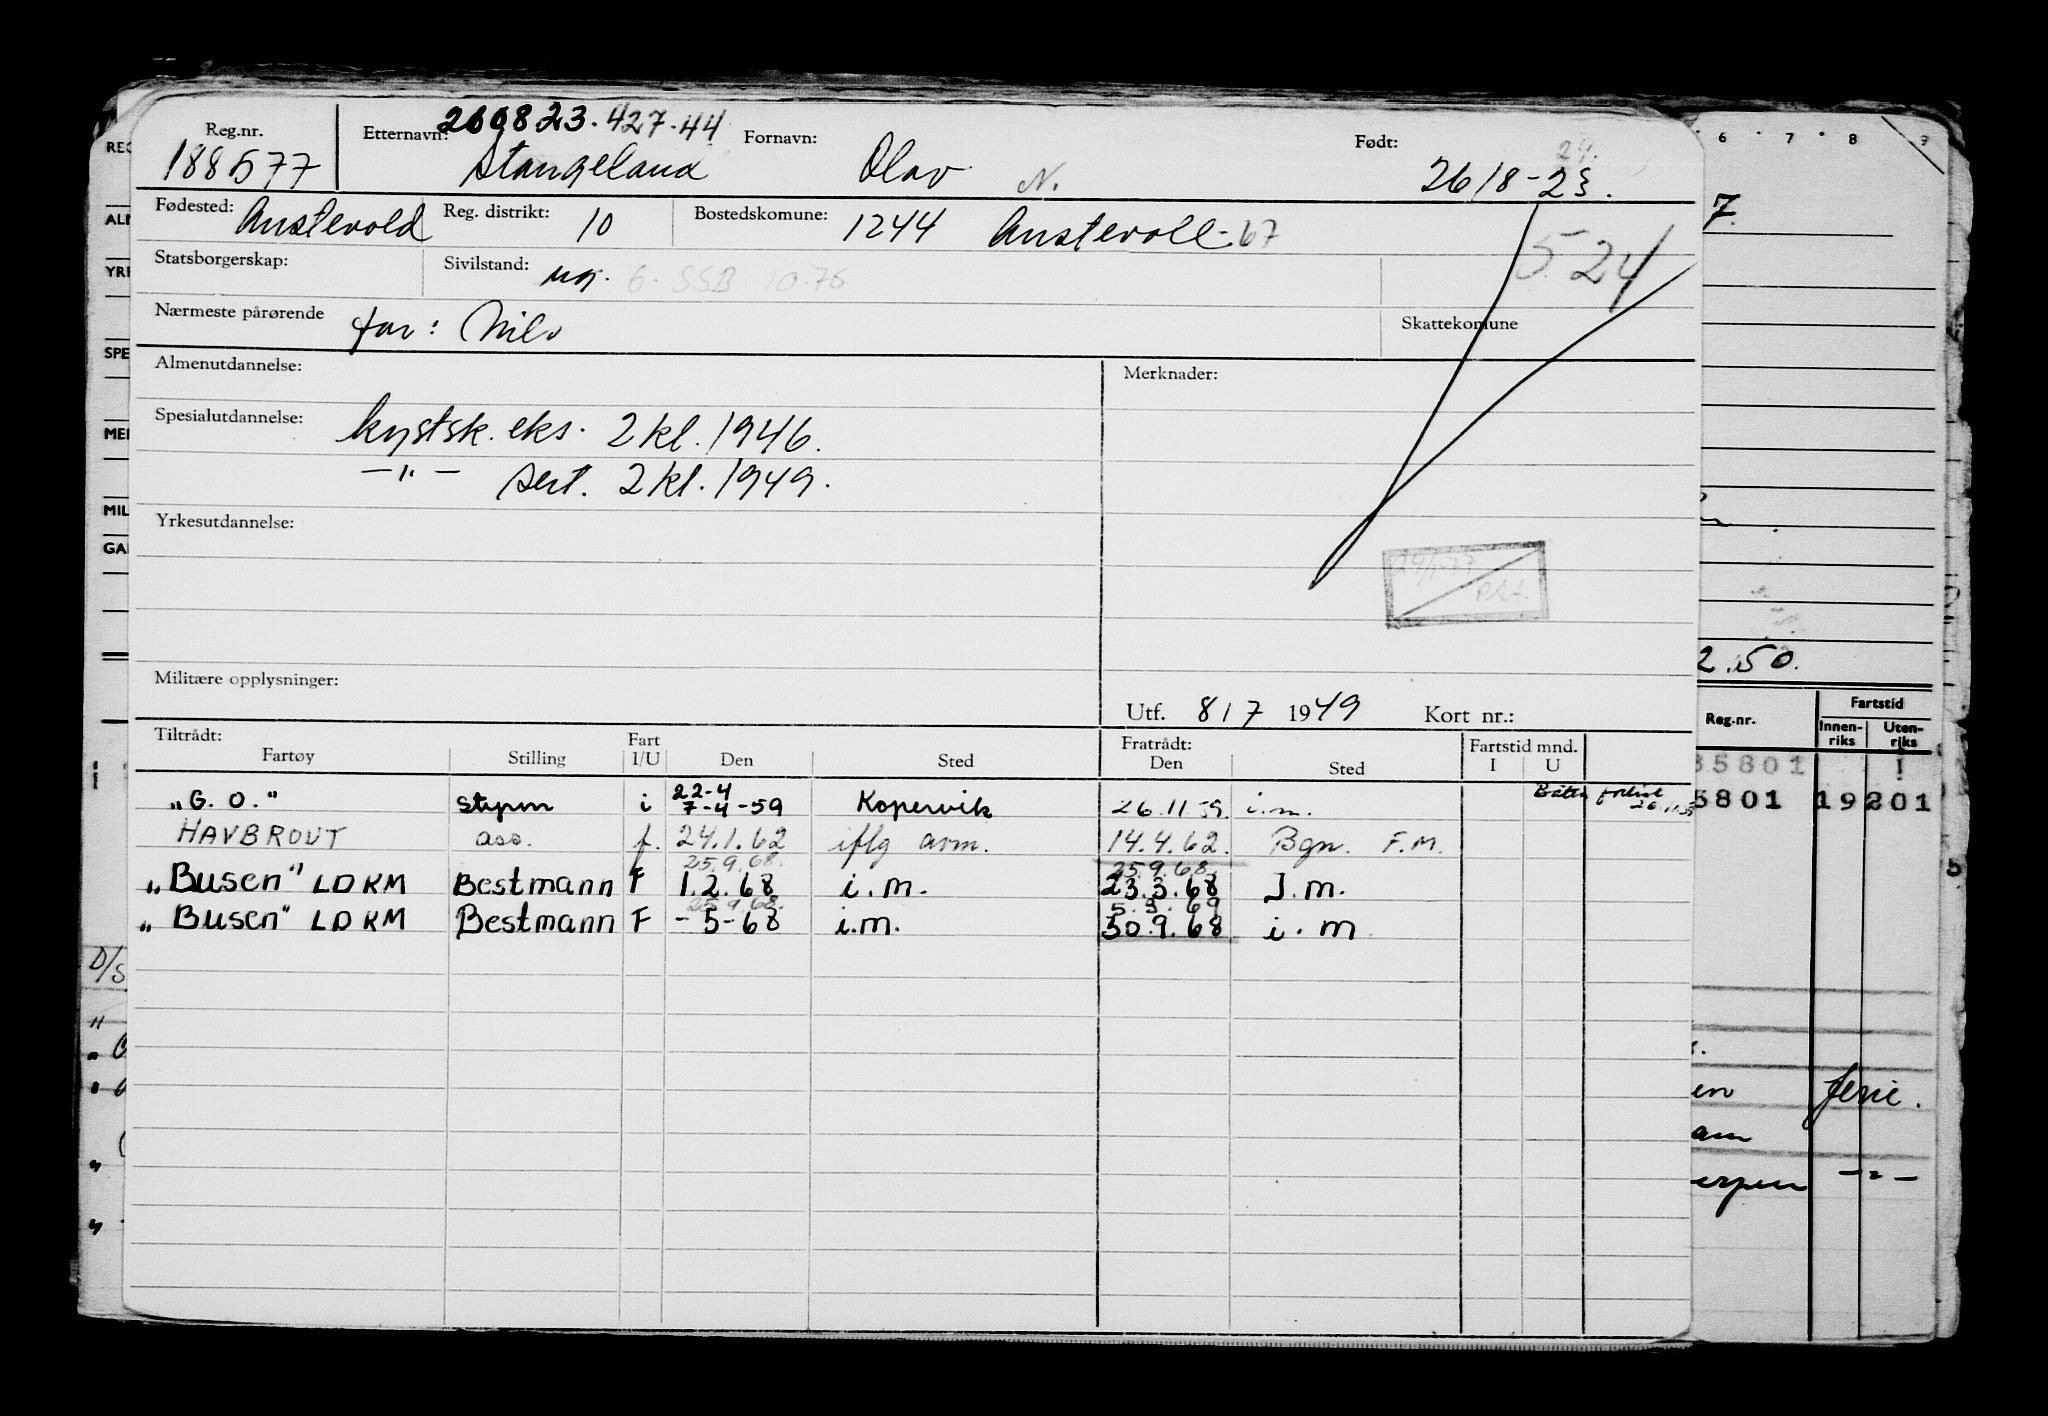 260823.427-44
Reg.nr. Etternavn: Fornavn: Født:
188577 Stangeland Olav N. 26/8-23.
24.
Fødested: Austevold Reg. distrikt: 10 Bostedskomune: 1244 Austevoll-67
Statsborgerskap: Sivilstand: ug. 6. SSB 10.76 524
Nærmeste pårørende far: Nils Skattekomune
Almenutdannelse: Merknader:
Spesialutdannelse: kystsk. eks. 2 kl. 1946.
—"— sert. 2 kl. 1949.
Yrkesutdannelse:
Militære opplysninger:
Utf. 8/7 1949 Kort nr.:
Tiltrådt: Fratrådt: Fartstid mnd.
Fartøy Stilling Fart I/U Den Sted Den Sted I U
22-4 Båten forlist
"G. O." Styrm i 7-4-59 Kopervik 26.11.59. i.m. 26.11.59
HAVBROUT ass. f. 24.1.62 iflg arm. 14.4.62. Bgn. F.M.
25.9.68. 25.9.68.
"Busen" LDKM Bestmann F 1.2.68 i.m. 23.3.68 I.m.
25.9.68. 5.3.69
"Busen" LDKM Bestmann F -5-68 i.m. 30.9.68 i.m
6 7 8 9
7.
2.50.
Reg.nr. Fartstid
Innen-riks Uten-riks
35801
5801 19 201
ferie.
D/S
REG
YRK
SPE
MIL